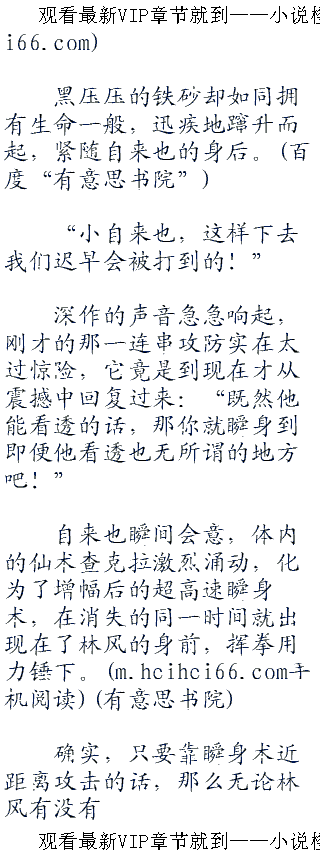 观看最新VIP章节就到——小说楼
i66.com)
黑压压的铁砂却如同拥
有生命一般，迅疾地蹿升而
起，紧随自来也的身后。(百
度“有意思书院”)
“小自来也，这样下去
我们迟早会被打到的！”
深作的声音急急响起，
刚才的那一连串攻防实在太
过惊险，它竟是到现在才从
震撼中回复过来：“既然他
能看透的话，那你就瞬身到
即便他看透也无所谓的地方
吧！”
自来也瞬间会意，体内
的仙术查克拉激烈涌动，化
为了增幅后的超高速瞬身
术，在消失的同一时间就出
现在了林风的身前，挥拳用
力锤下。(m.hcihci66.com手
机阅读)(有意思书院)
确实，只要靠瞬身术近
距离攻击的话，那么无论林
风有没有
观看最新VIP章节就到——小说楼